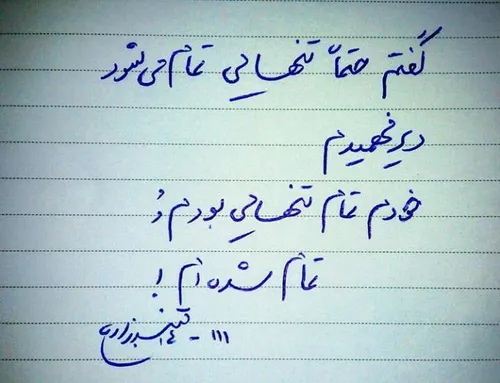 گفتم حتماً تنهایی تمام می‌شود
دیر فهمیدم
خودم تمام تنهایی بودم وُ
تمام شده‌ام !
۱۱۱ -